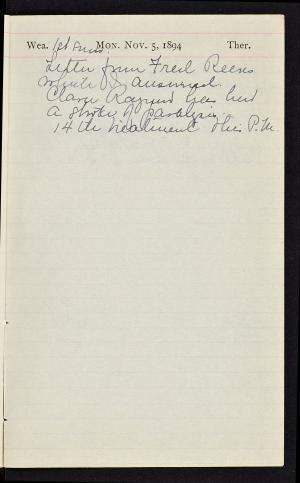 Wea. MON. NOV. 5, 1894 Ther.
Letter from Fred Reeves
answered.
has had
a stroke of paralysis.
14th treatment this P.M.